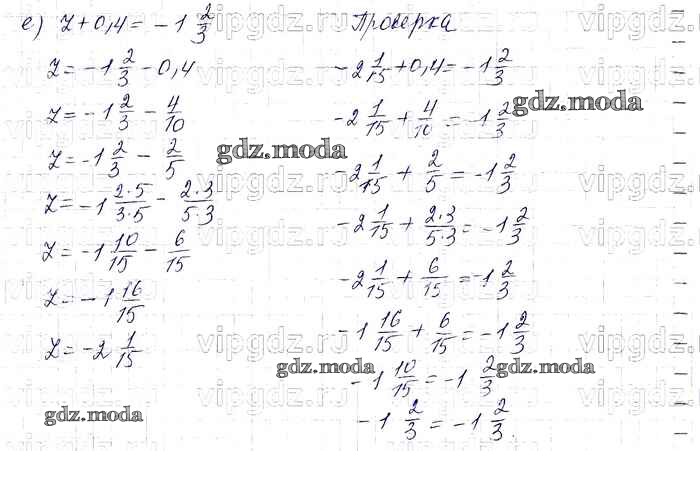 е) z + 0,4 = -1 2/3
z = -1 2/3 - 0,4
z = -1 2/3 - 4/10
z = -1 2/3 - 2/5
z = -1 2·5/3·5 - 2·3/5·3
z = -1 10/15 - 6/15
z = -1 16/15
z = -2 1/15
Проверка
-2 1/15 + 0,4 = -1 2/3
-2 1/15 + 4/10 = -1 2/3
-2 1/15 + 2/5 = -1 2/3
-2 1/15 + 2·3/5·3 = -1 2/3
-2 1/15 + 6/15 = -1 2/3
-1 16/15 + 6/15 = -1 2/3
-1 10/15 = -1 2/3
-1 2/3 = -1 2/3
gdz.moda
gdz.moda
gdz.moda
gdz.moda
gdz.moda
vipgdz.ru